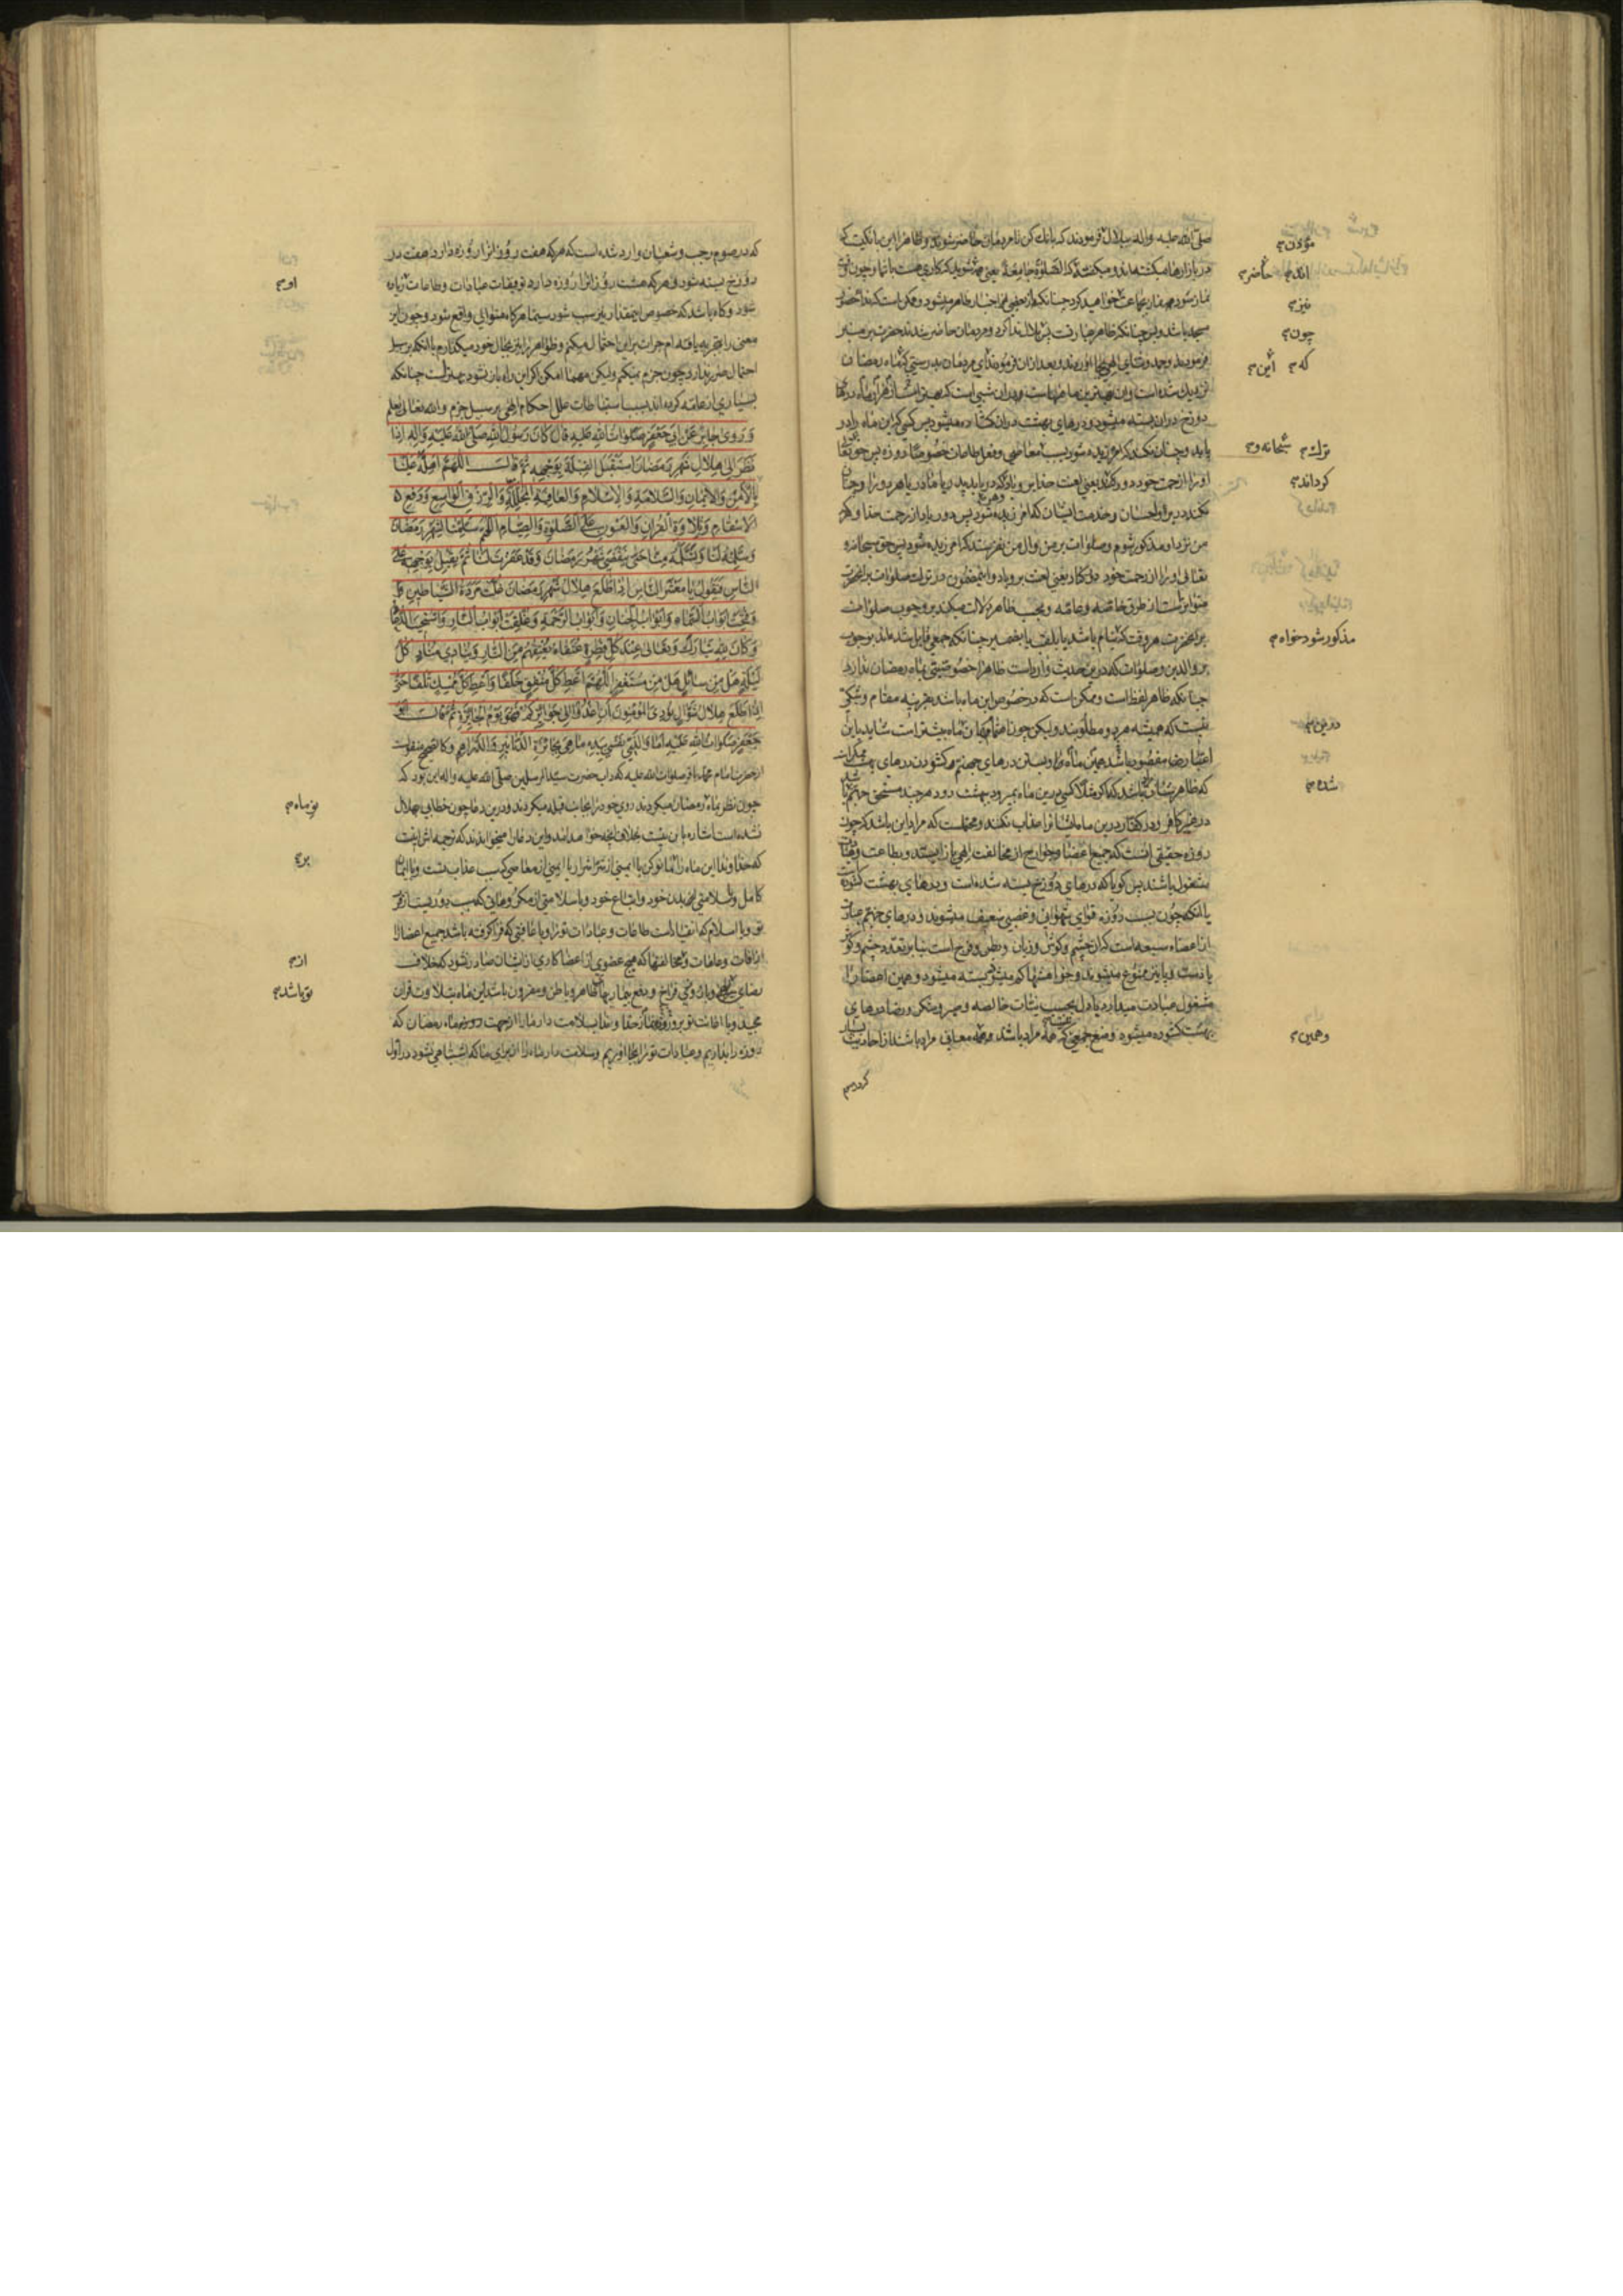 صلی الله علیه و اله ببلال فرمودند که بانك كن تا مردمان حاضر شوند و ظاهرا این بانگیست که
در بازارها میکشتند و میکفتند که الصلوة جامعة یعنی همه شوید که کاری هست با شما و چون وقت
نماز شود همه نماز بجماعت خواهید کرد چنانکه از بعضی اخبار ظاهر میشود و ممکن است که ندا حضور
مسجد باشد و بس چنانکه ظاهر عبارتست پس بلال ندا کرد و مردمان حاضر شدند حضرت بر منبر
فرمودند و حمد و ثنای الهی بجا اوردند و بعد از آن فرمودند ای مردمان بدرستی که ماه رمضان
دوزخ در ان بسته میشود و درهای بهشت در ان کشاده میشود پس کسی که این ماه را در
یابد و چنان نکند که امرزیده شود بسبب معاصی و فعل طاعات خصوصا روزه پس حق تعالی
او را از رحمت خود دور کند یعنی لعنت خدا بر و باد و کسی که در یابد پدر یا مادر یا هر دو را و چنان
نکند در بر و احسان و خدمت ایشان که امرزیده شود پس دور باد از رحمت خدا و هر که
من نزد او مذکور شوم و صلوات بر من و ال من نفرستد که امرزیده شود پس حق سبحانه و
تعالی او را از رحمت خود دور کناد یعنی لعنت بر و باد و این مضمون در ترك صلوات بر انحضرت
متواتر است از طرق خاصه و عامه و بحسب ظاهر دلالت میکند بر وجوب صلوات
بر انحضرت هر وقت که نام باشد یا بلقب یا بضمیر چنانکه جمعی قایل شده اند بوجوب
بر والدین و صلوات که درین حدیث وارد است ظاهرا خصوصیتی بماه رمضان ندارد
چنانکه ظاهر لفظ است و ممکن است که در خصوص این ماه باشد بقرینه مقام و شکی
نیست که همیشه هر دو مطلوبند و لیکن چون اهتمام بان ماه بیشتر است شاید باین
اعتبار رضا مقصود باشد همین ماه مراد و بستن درهای جهنم و کشودن درهای بهشت
که ظاهرش ان باشد که اگر مثلا کسی درین ماه بمیرد ببهشت رود هر چند مستحق جهنم باشد
در غیر کافر و در کفار درین ماه ایشانرا عذاب نکنند و محتملست که مراد این باشد که چون
روزه حقیقی انست که جمیع اعضا و جوارح از مخالفت الهی باز ایستد و بطاعت
مشغول باشند پس کویا که درهای دوزخ بسته شده است و درهای بهشت کشوده
یا انکه چون بسبب روزه قوای شهوانی و غضبی ضعیف میشوند و درهای جهنم عبارت
از اعضاء سبعه است که ان چشم و کوش و زبان و بطن و فرج است بنابر تعدد چشم و کوش
یا دست و پا نیز ممنوع میشوند و خواهشها کمتر بسته میشود و همین اعضا را
مشغول عبادت میدارد یا دل بحسب نیات خالصه و صبر و شکر و رضا درهای
بهشت کشوده میشود و منع جمعی نیست که همه مراد باشد و همه معانی مراد باشند از احادیث بسیار
مؤذن
اند حاضر
نیز
چون
که این
ترك سبحانه و
کرداند
مذکور شود خواه
درین
شده
وهمین
کردیم
که در صوم رجب و شعبان وارد شده است که هر که هفت روز انرا روزه دارد هفت در
دوزخ بسته شود و هر که هشت روز انرا روزه دارد توفیقات عبادات و طاعات زیاد
شود و کاه باشد که خصوص اینمقدار نیز سبب شود سیما هرکاه متوالی واقع شود و چون این
معنی را بتجربه یافته ام جرات بر این احتمال میکنم و ظواهر را نیز بحال خود میکذارم با انکه بر سبیل
احتمال ضرر ندارد و چون جزم نمیکنم و لیکن مهما امکن اکر این راه باز نشود بهتر است چنانکه
بسیاری از عامه کرده اند بسبب استنباطات علل احکام الهی بر سبیل جزم و الله تعالی یعلم
وَ رَوىٰ جابِرٌ عَنْ اَبي جَعْفَرٍ صَلَواتُ اللهِ عَلَيْهِ قالَ كانَ رَسُولُ اللهِ صَلَّى اللهُ عَلَيْهِ وَ اٰلِهِ اِذا
نَظَرَ اِلىٰ هِلالِ شَهْرِ رَمَضانَ اسْتَقْبَلَ الْقِبْلَةَ بِوَجْهِهِ ثُمَّ قالَ اللّهُمَّ اَهِلَّهُ عَلَيْنا
بِالْاَمْنِ وَالْاِيمانِ وَالسَّلامَةِ وَالْاِسْلامِ وَالْعافِيَةِ الْمُجَلِّلَةِ وَالرِّزْقِ الْواسِعِ وَ دَفْعِ
الْاَسْقامِ وَ تِلاوَةِ الْقُراٰنِ وَالْعَوْنِ عَلَى الصَّلوٰةِ وَالصِّيامِ اللّهُمَّ سَلِّمْنا لِشَهْرِ رَمَضانَ
وَ سَلِّمْهُ لَنا وَ تَسَلَّمْهُ مِنّا حَتّىٰ يَنْقَضِيَ شَهْرُ رَمَضانَ وَ قَدْ غَفَرْتَ لَنا ثُمَّ يُقْبِلُ بِوَجْهِهِ عَلَى
النّاسِ فَيَقُولُ يا مَعْشَرَ النّاسِ اِذا طَلَعَ هِلالُ شَهْرِ رَمَضانَ غُلَّتْ مَرَدَةُ الشَّياطِينِ
وَ فُتِحَتْ اَبْوابُ السَّماءِ وَ اَبْوابُ الْجِنانِ وَ اَبْوابُ الرَّحْمَةِ وَ غُلِّقَتْ اَبْوابُ النّارِ وَ اسْتُجِيبَ الدُّعاءُ
وَ كانَ لِلّهِ تَبارَكَ وَ تَعالىٰ عِنْدَ كُلِّ فِطْرٍ عُتَقاءُ يُعْتِقُهُمْ مِنَ النّارِ وَ يُنادِي مُنادٍ كُلَّ
لَيْلَةٍ هَلْ مِنْ سائِلٍ هَلْ مِنْ مُسْتَغْفِرٍ اللّهُمَّ اَعْطِ كُلَّ مُنْفِقٍ خَلَفًا وَ اَعْطِ كُلَّ مُمْسِكٍ تَلَفًا حَتّىٰ
اِذا طَلَعَ هِلالُ شَوّالٍ نُودِيَ الْمُؤْمِنُونَ اَنِ اغْدُوا اِلىٰ جَوائِزِكُمْ فَهُوَ يَوْمُ الْجائِزَةِ ثُمَّ قالَ اَبُو
جَعْفَرٍ صَلَواتُ اللهِ عَلَيْهِ اَما وَالَّذِي نَفْسِي بِيَدِهِ ما هِيَ بِجائِزَةِ الدَّنانِيرِ وَالدَّراهِمِ و کالصحیح منقولست
از حضرت امام محمد باقر صلوات الله علیه که داب حضرت سید المرسلین صلی الله علیه و اله این بود که
چون نظر بماه رمضان میکردند روی خود را بجانب قبله میکردند و درین دعا چون خطابی بهلال
نشده است اشاره بان نیست بخلاف انچه خواهد امد و این دعا را میخواندند که ترجمه اش اینست
که خداوندا این ماه را ماه نو کن با ایمنی از شر اشرار یا ایمنی از معاصی که سبب عذاب تست و با ایمان
کامل و با سلامتی بدن خود و اتباع خود و با سلامتی از مکروهاتی که سبب دوریست از قرب
تو و با اسلام که انقیاد است طاعات و عبادات ترا و با عافیتی که فرا کرفته باشد جمیع اعضا را
از افات و عاهات و مخالفتها که هیچ عضوی از اعضا کاری از ایشان صادر نشود که خلاف
رضای تو باشد و با روزی فراخ و دفع بیماریهای ظاهر و باطن و مقرون باشد این ماه بتلاوت قران
مجید و با اعانت تو بر روزه و نماز خداوندا بسلامت دار ما را از جهت روزه ماه رمضان که
روزه را بداریم و عبادات ترا بجا اوریم و سلامت دار ماه را از برای ما که مشتبه نشود در اول
او
نو ماه
بر
از
تو باشد